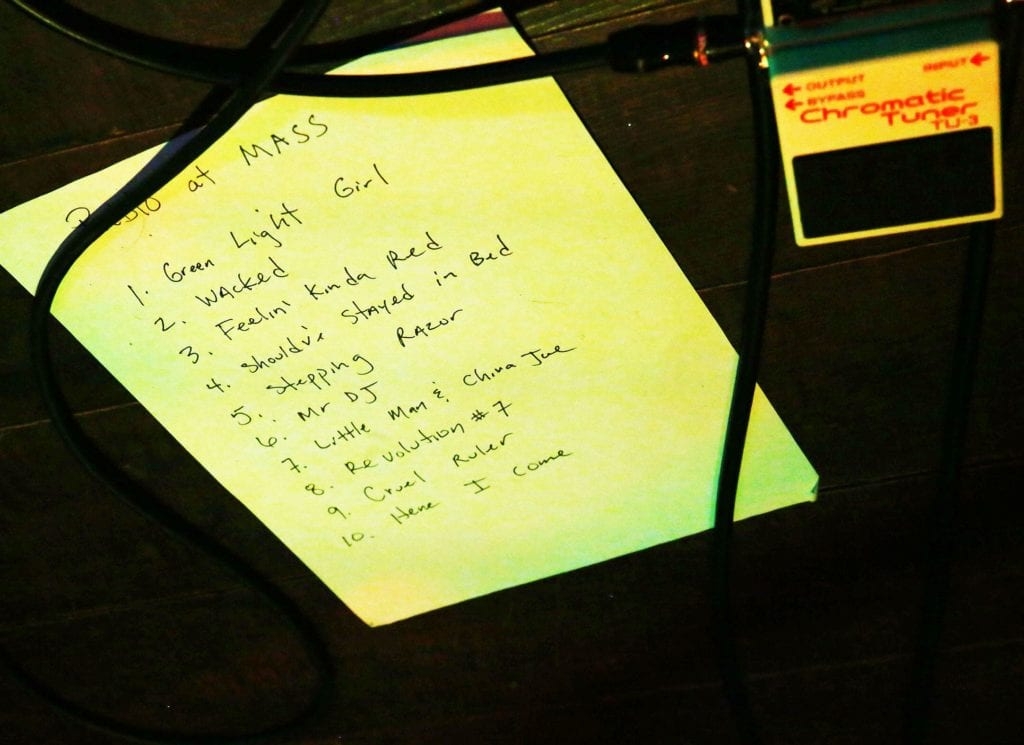 at MASS
1. Green Light Girl
2. WAcked
3. Feelin' Kinda Red
4. Should've Stayed in Bed
5. Stepping RAzor
6. Mr DJ
7. Little Man & China Joe
8. Revolution #7
9. Cruel Ruler
10. Here I come
OUTPUT
INPUT
BYPASS
Chromatic
Tuner
TU-3